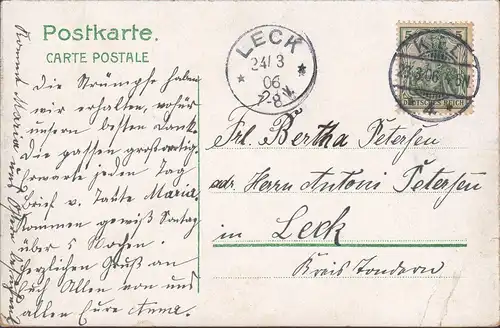 Postkarte.
CARTE POSTALE
LECK
24/3
06
7-8V.
5 5
KIEL
23.3.06
DEUTSCHES REICH
Die Strümpfe haben
wir erhalten, wofür
unsern besten Dank.
Die passen großartig.
erwarte jeden Tag
Brief v. Tante Maria.
Kommen gewiß Sonntag
über 5 Wochen.
Herzlichen Gruß an
Euch Allen von uns
allen Eure Anna.
Maria und
Frl. Bertha Petersen
adr. Herrn Antoni Petersen
in Leck
Kreis Tondern